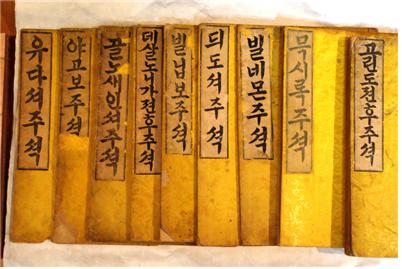 유다셔주석
야고보주석
골노새인셔주석
데살노니가젼후주석
빌닙보주석
듸도셔주석
빌네몬주석
묵시록주석
고린도젼후주석